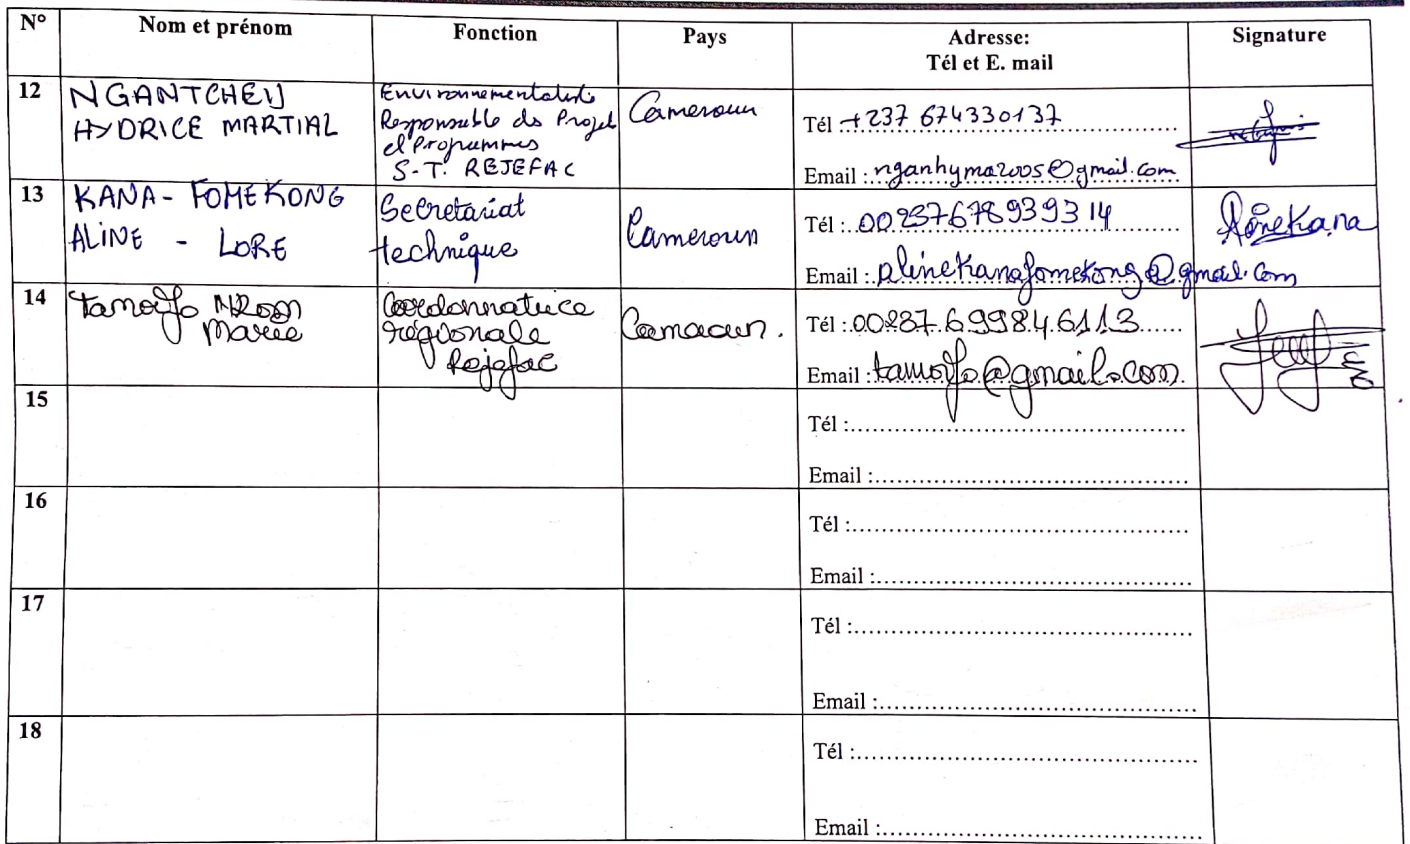 N° Nom et prénom Fonction Pays Adresse: Tél et E. mail Signature
12 NGANTCHEU HYDRICE MARTIAL
Environnementaliste
Responsable de Projet
et Programmes
S-T. REJEFAC
Cameroun
Tél +237 674330137
Email : nganhyma2005@gmail.com
13 KANA - FOMEKONG
ALINE - LORE
Secretariat
technique
Cameroun
Tél : 00237678939314
Email : alinekanafomekong@gmail.com
AlineKana
14 Tamoifo
Marie
Coordonnatrice
régionale
Rejefac
Cameroun.
Tél : 00237.699846113
Email : tamoifo@gmail.com
15
Tél :
Email :
16
Tél :
Email :
17
Tél :
Email :
18
Tél :
Email :